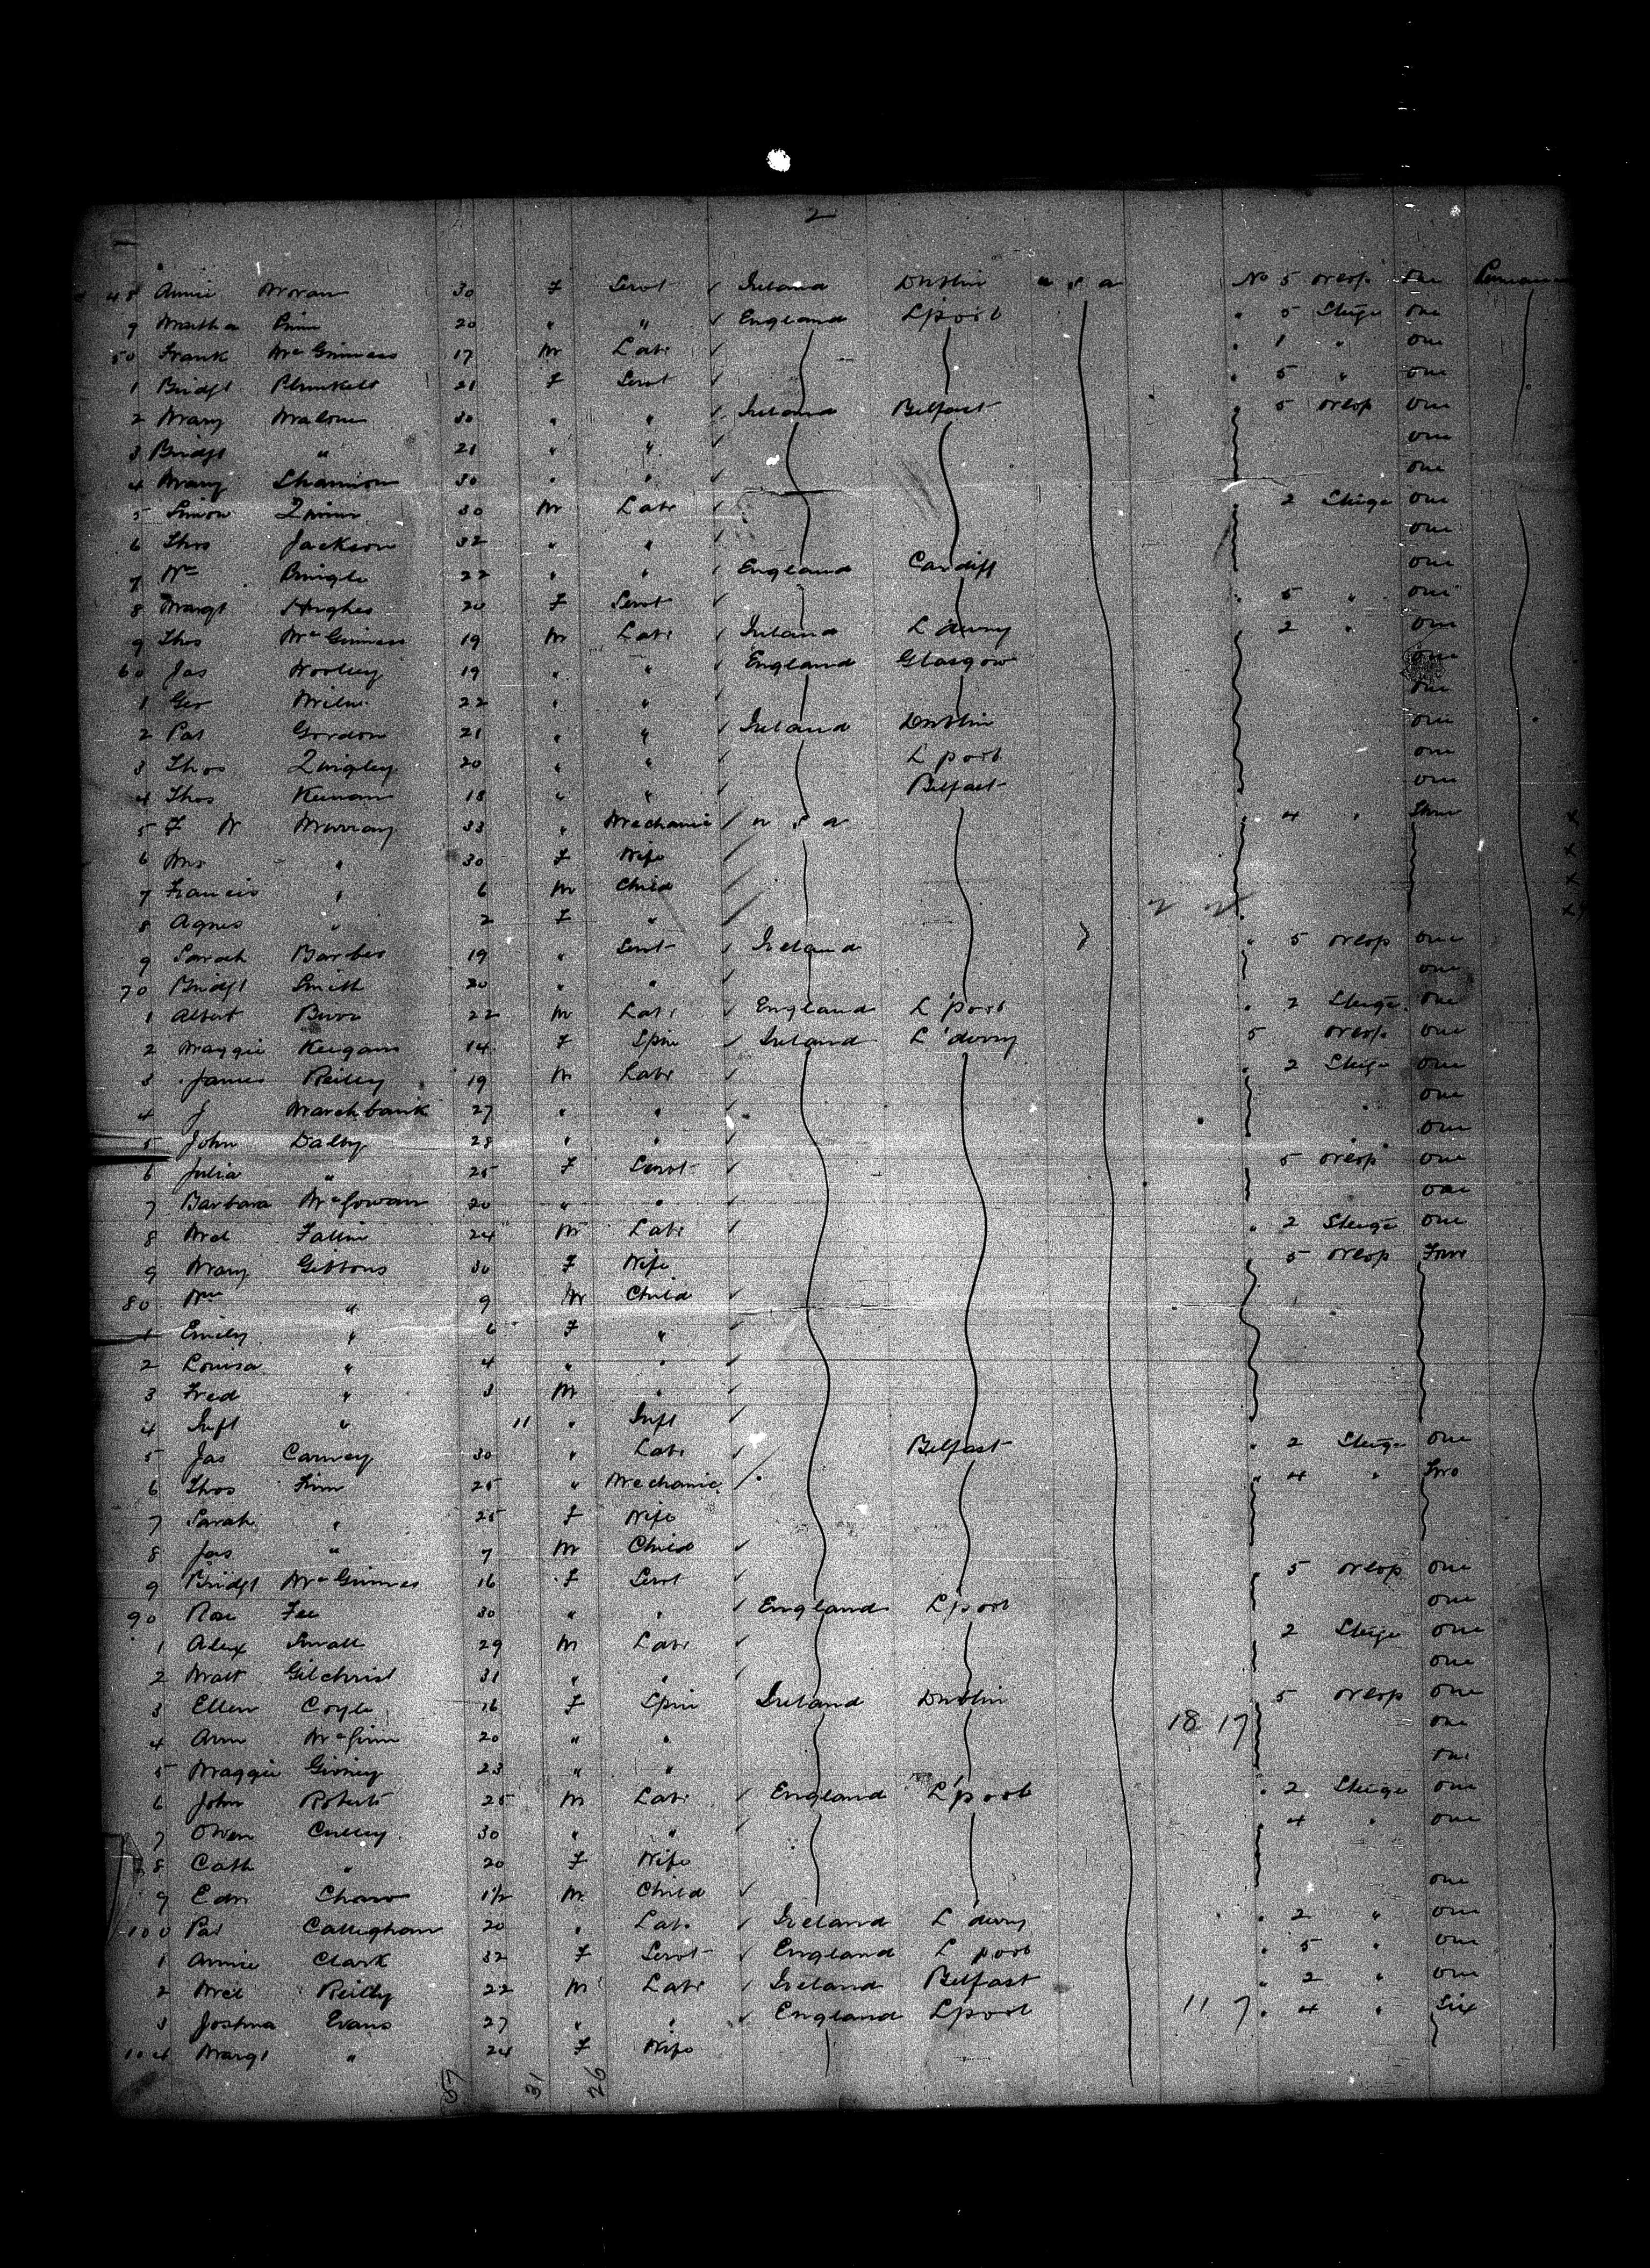 2
48 Annie Moran 30 F Servt ✓ Ireland Dublin U S A No 5 Orlop One
9 Martha 20 " " ✓ England L'pool " 5 Steige One
50 Frank McGinness 17 M Labr ✓ " 1 " One
1 Bridgt Plunkett 21 F Servt ✓ " 5 " One
2 Mary Malone 30 " " ✓ Ireland Belfast " 5 Orlop One
3 Bridgt " 21 " " ✓ One
4 Mary Shannon 30 " " ✓ One
5 Simon Quinn 30 M Labr ✓ 2 Steige One
6 Thos Jackson 32 " " ✓ One
7 Wm Pringle 22 " " ✓ England Cardiff One
8 Margt Hughes 20 F Servt ✓ " 5 " One
9 Thos McGinness 19 M Labr ✓ Ireland L'derry " 2 " One
60 Jas Woolley 19 " " ✓ England Glasgow One
1 Geo Milne 22 " " ✓ One
2 Pat Gordon 21 " " ✓ Ireland Dublin One
3 Thos Quigley 20 " " ✓ L'pool One
4 Thos Keenan 18 " " ✓ Belfast One
5 F W Murray 33 " Mechanic / U S A " 4 " Three x
6 Mrs " 30 F Wife / x
7 Francis " 6 M Child / x
8 Agnes " 2 F " / x
9 Sarah Barber 19 " Servt ✓ Ireland " 5 Orlop One
70 Bridgt Smith 20 " " ✓ One
1 Albert 22 M Labr ✓ England L'pool " 2 Steige One
2 Maggie Keegans 14 F Spin ✓ Ireland L'derry 5 Orlop One
3 James Reilly 19 M Labr ✓ " 2 Steige One
4 J Marchbank 27 " " ✓ " One
5 John Dalby 28 " " ✓ One
6 Julia " 25 F Servt ✓ 5 Orlop One
7 Barbara McGowan 20 " " ✓ One
8 Mcl Fallin 24 M Labr ✓ " 2 Steige One
9 Mary Gibbons 30 F Wife 5 Orlop Four
80 Wm " 9 M Child ✓
1 Emily " 6 F " ✓
2 Louisa " 4 " " ✓
3 Fred " 3 M " ✓
4 Inft " 11 " Inft ✓
5 Jas Carney 30 " Labr ✓ Belfast " 2 Steige One
6 Thos Finn 25 " Mechanic / " 4 " Two
7 Sarah " 25 F Wife
8 Jas " 7 M Child ✓
9 Bridgt McGinnes 16 F Servt ✓ " 5 Orlop One
90 Rose Fee 30 " " ✓ England L'pool One
1 Alex Small 29 M Labr ✓ 2 Steige One
2 Matt Gilchrist 31 " " ✓ One
3 Ellen Coyle 16 F Spin Ireland Dublin 5 Orlop One
4 Ann McGinn 20 " " 18 17 One
5 Maggie Givney 23 " " One
6 John Roberts 25 M Labr ✓ England L'pool " 2 Steige One
7 Owen Culley 30 " " ✓ " 4 " One
8 Cath " 20 F Wife
9 Edn Shaw 1½ M Child ✓ One
100 Pat Callighan 20 " Labr ✓ Ireland L'derry " 2 " One
1 Annie Clark 32 F Servt ✓ England L'pool " 5 " One
2 Mcl Reilly 22 M Labr ✓ Ireland Belfast " 2 " One
3 Joshua Evans 27 " " ✓ England L'pool 11 7 " 4 " Six
104 Margt " 24 F Wife
57 31 26